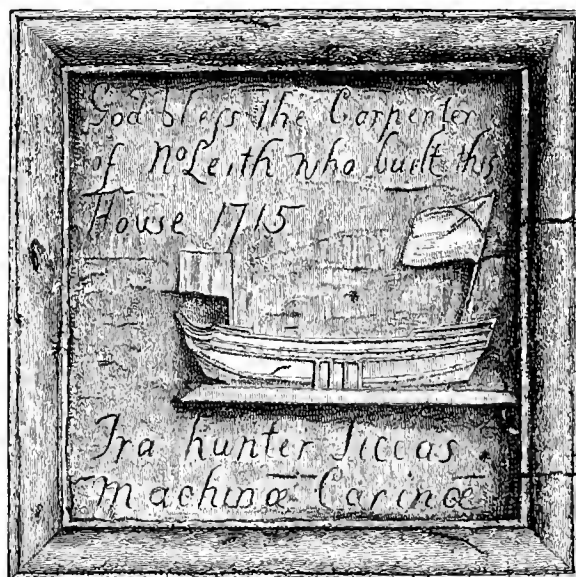 God bleſs the Carpenter
of No Leith who built this
House 1715
Tra hunter ſiccas
machinæ Carinæ